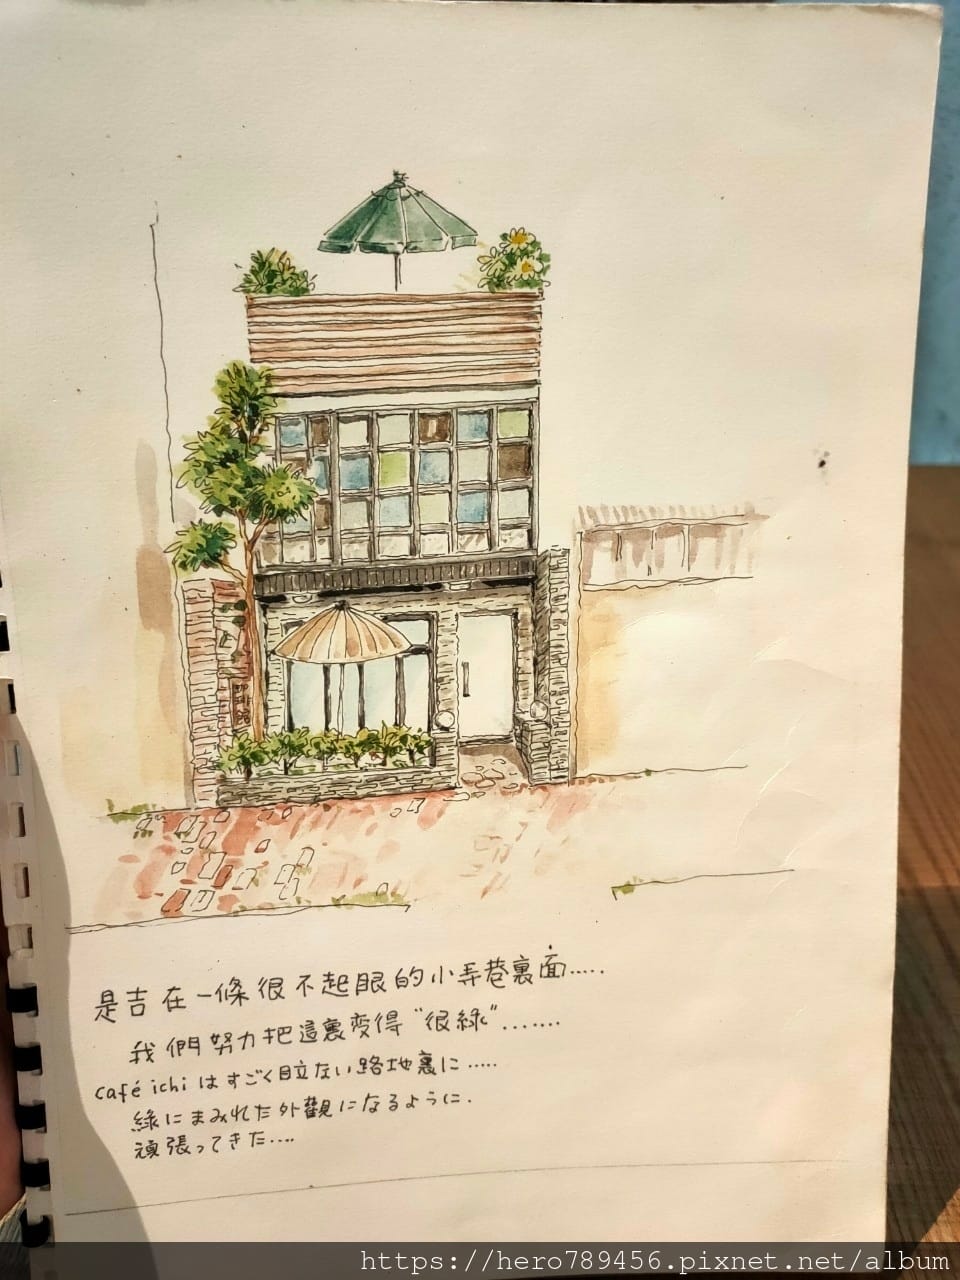 咖啡館
是吉在一條很不起眼的小弄巷裏面.....
我們努力把這裏変得“很綠”.......
café ichi はすごく目立ない路地裏に.....
綠にまみれた外觀になるように.
頑張ってきた....
https://hero789456.pixnet.net/album